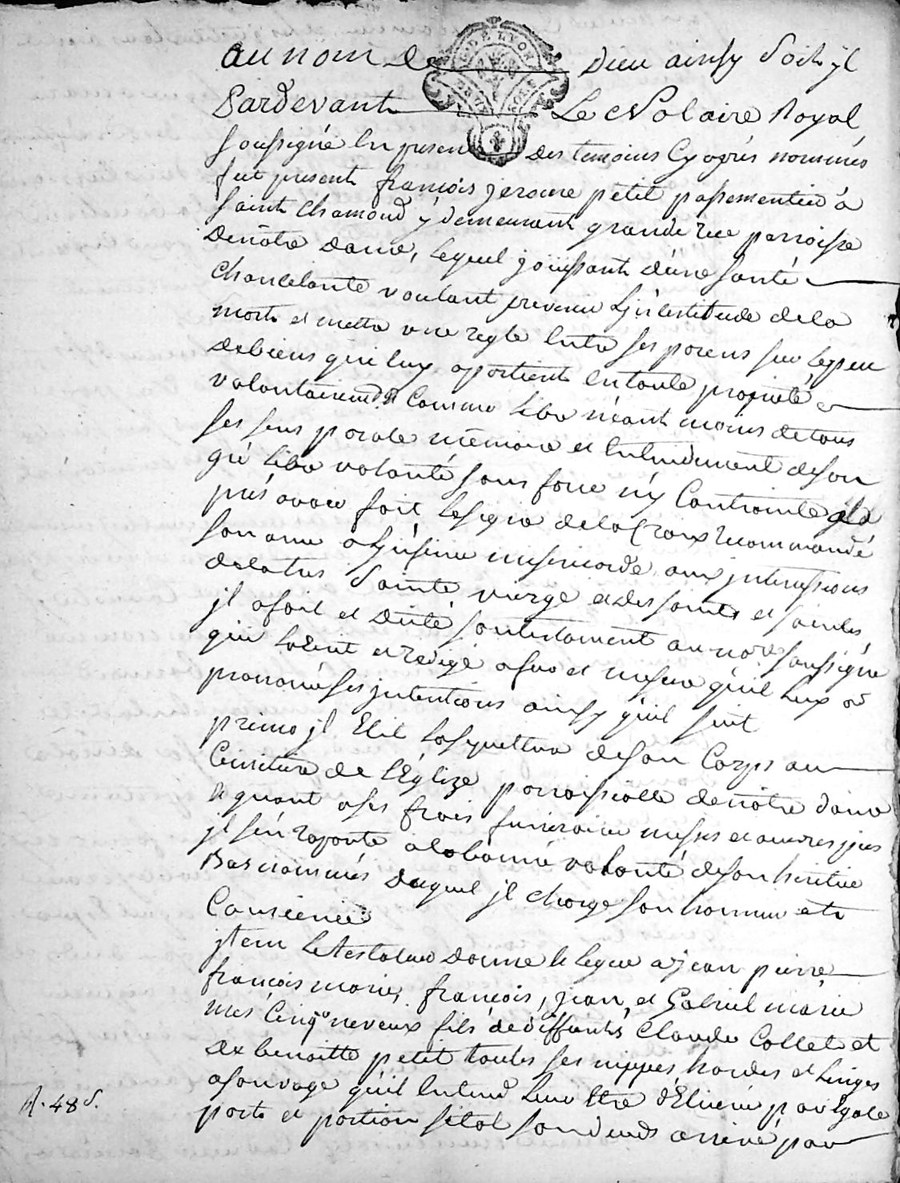 au nom de Dieu ainsy soit jl
Pardevant Le Notaire Royal
soussigné En presence des temoins Cy aprés nommés
fut present françois jerome petit passementier à
saint Chamond y demeurant grande rüe parroisse
denôtre dame, lequel joüissant d'une santé
chancelante voulant prevenir L'jncertitude dela
mort et mettre une regle Entre ses parens sur le peu
debiens qui luy apartient Entoute proprieté
volontairemt. et Comme libre néant moins detous
ses sens parole mémoire et Entendement deson
gré libre volonté sans force ny Contrainte
prés avoir fait lesigne delaCroix recommandé
son ame a L'jnfinie misericorde aux jntercessions
delatres Sainte vierge et des saints et saintes
jl afait et dicté sontestament au nore. soussigné
qui L'aécrit et redigé afur et mesure qu'il luy a
prononcé ses jntentions ainsy quil suit
premo jl Elit sa sepulture deson Corps au
Cimetiere de L'Eglize parroissialle denôtre dame
& quant ases frais funeraires messes et autres pies
jl s'en raporte alabonne volonté deson heritier
Bas nommés duquel jl charge son honneur et
Conscience
jtem Le testateur donne & legue a jean pierre
françois marie, françois, jean et Gabriel marie
mes Cinq neveux fils de deffunts Claude Collet et
de benoitte petit toutes ses nippes hardes et linges
asonusage qu'il Entend Leur Etre délivré par Egale
part et portion sitot sondecés arrivé par
R. 48 s.